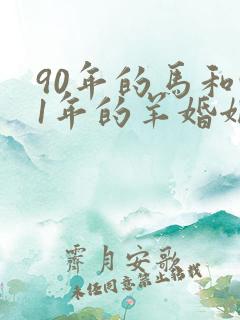 90年的馬和
1年的羊婚
霽月安歌
未经同意禁止搬载